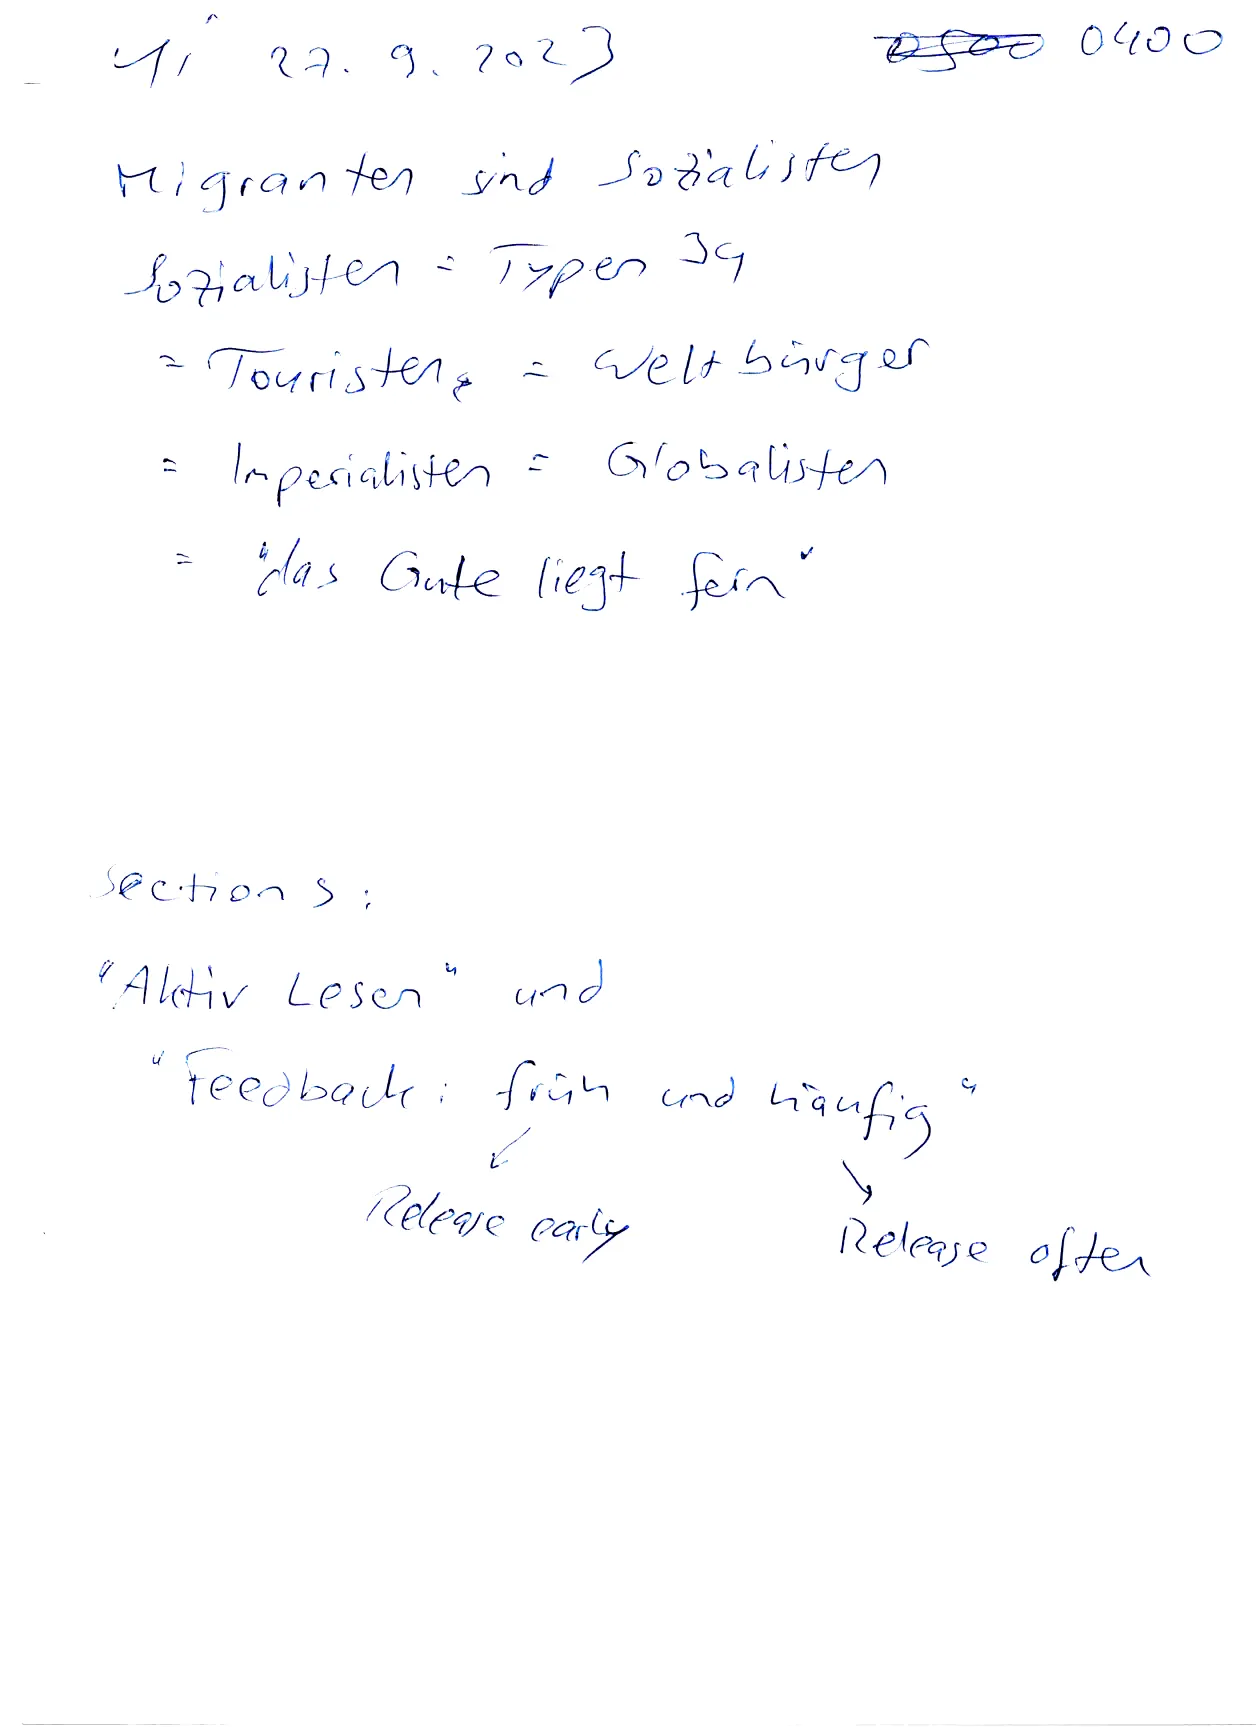 Mi 27. 9. 2023 0500 0400
Migranten sind Sozialisten
Sozialisten = Typen 34
= Touristen = Weltbürger
= Imperialisten = Globalisten
= "das Gute liegt fern"
Sections:
"Aktiv Lesen" und
"Feedback: früh und häufig"
Release early
Release often